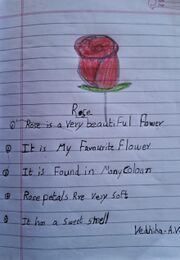 Rose
① Rose is a very beautiful flower
② It is My Favourite Flower
③ It is Found in Many Colour
④ Rose petals Are very soft
⑤ It has a sweet smell
Vethika-A.V